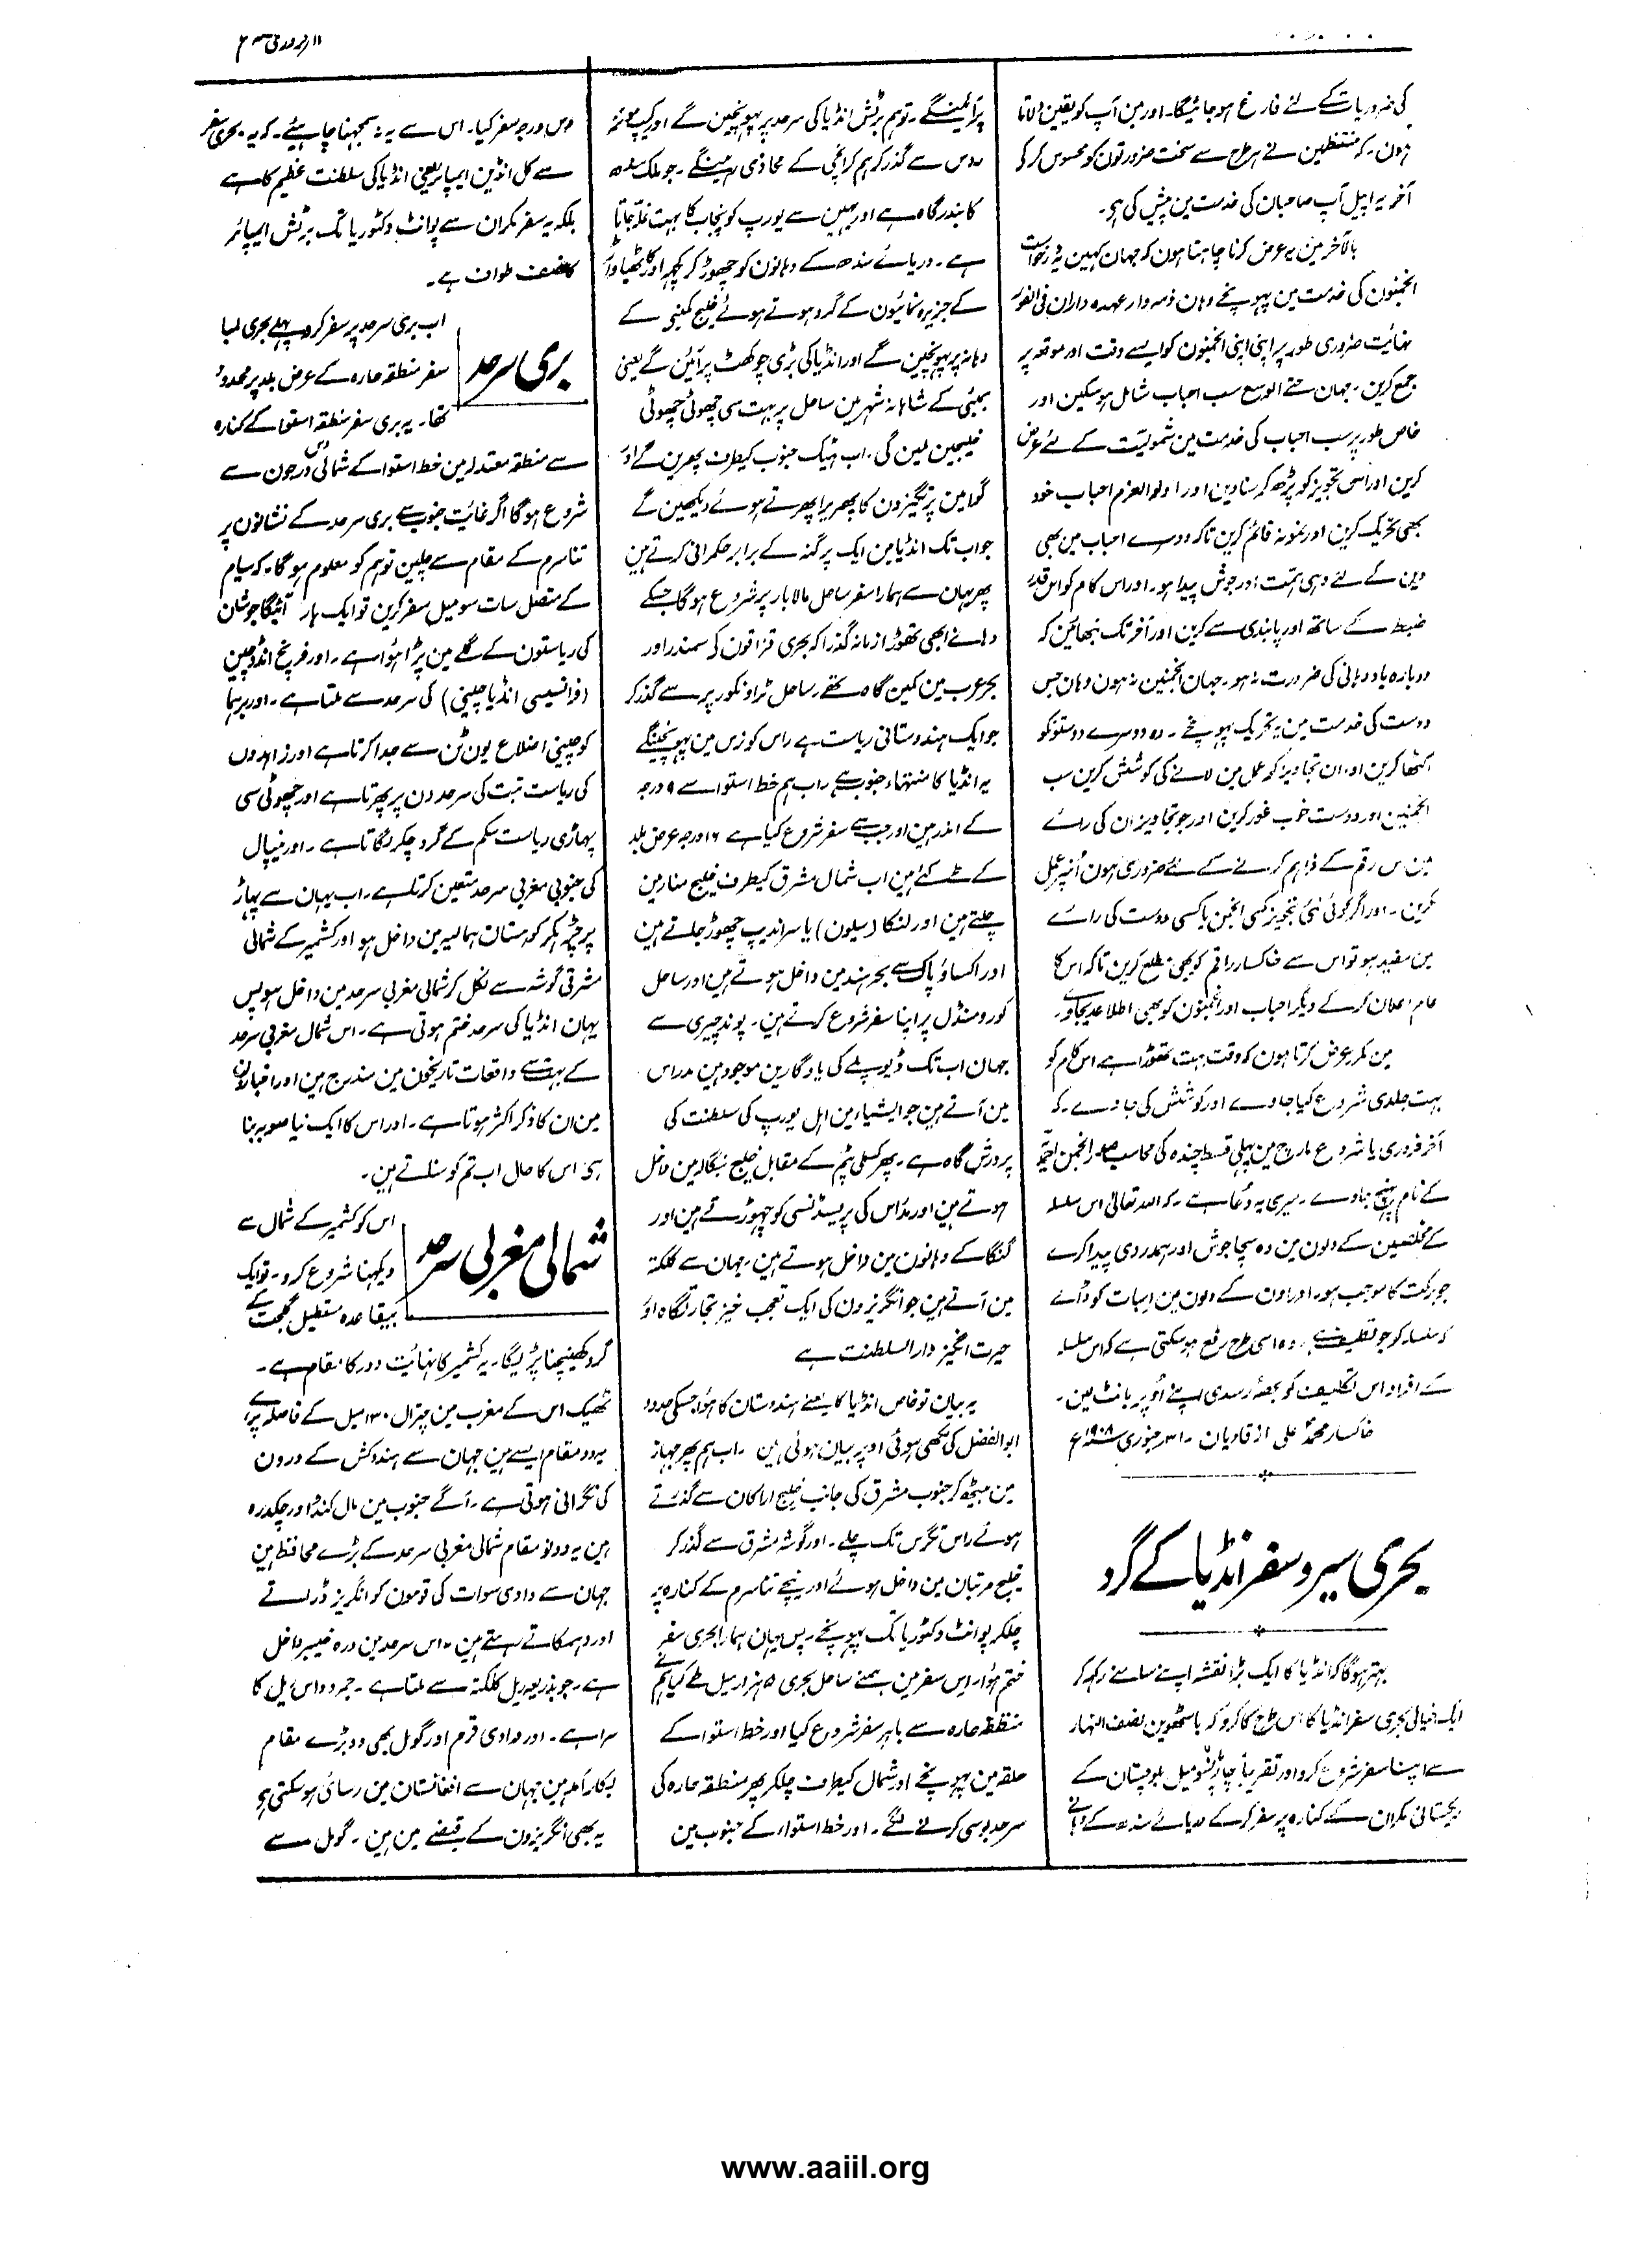 ۱۱ فروری
کی ضروریات کے لئے فارغ ہو جائیگا۔ اور مین آپ کو یقین دلاتا
ہون۔ کہ منتظمین نے ہر طرح سے سخت ضرورتون کو محسوس کر کے
آخر یہ اپیل آپ صاحبان کی خدمت مین پیش کی ہے۔
بالآخر مین یہ عرض کرنا چاہتا ہون کہ جہان کہین یہ درخواست
انجمنون کی خدمت مین پہونچے وہان ذمہ وار عہدہ داران فی الفور
نہائت ضروری طور پر اپنی اپنی انجمنون کو ایسے وقت اور موقعہ پر
جمع کرین۔ جہان حتے الوسع سب احباب شامل ہو سکین اور
خاص طور پر سب احباب کی خدمت مین شمولیت کے لئے عرض
کرین اور اس تجویز کو پڑھ کر سنا دین اور اولوالعزم احباب خود
بھی تحریک کرین اور نمونہ قائم کرین تاکہ دوسرے احباب مین بھی
دین کے لئے وہی ہمت اور جوش پیدا ہو۔ اور اس کام کو اس قدر
ضبط کے ساتھ اور پابندی سے کرین اور آخر تک نبھائین کہ
دوبارہ یاد دہانی کی ضرورت نہ ہو۔ جہان انجمنین نہ ہون وہان جس
دوست کی خدمت مین یہ تحریک پہونچے۔ وہ دوسرے دوستونکو
اکٹھا کرین اور ان تجاویز کو عمل مین لانے کی کوشش کرین سب
انجمنین اور دوست خوب غور کرین اور جو تجاویز ان کی رائے
مین اس رقم کے فراہم کرنے کے لئے ضروری ہون اُنپر عمل
کرین۔ اور اگر کوئی نئی تجویز کسی انجمن یا کسی دوست کی رائے
مین مفید ہو تو اس سے خاکسار راقم کو بھی مطلع کرین تاکہ اس کا
عام اعلان کر کے دیگر احباب اور انجمنون کو بھی اطلاع دیجاوے۔
مین مکرر عرض کرتا ہون کہ وقت بہت تھوڑا ہے اس کام کو
بہت جلدی شروع کیا جاوے اور کوشش کی جاوے۔ کہ
آخر فروری یا شروع مارچ مین پہلی قسط چندہ کی محاسب صدر انجمن احمدیہ
کے نام پہنچ جاوے۔ میری یہ دُعا ہے۔ کہ اللہ تعالیٰ اس سلسلہ
کے مخلصین کے دلون مین وہ سچا جوش اور ہمدردی پیدا کرے
جو برکت کا موجب ہو۔ اور اون کے دلون مین اس بات کو ڈالے
کہ سلسلہ کو جو تکلیف ہے۔ وہ اسی طرح رفع ہو سکتی ہے کہ اس سلسلہ
کے افراد اس تکلیف کو بحصۂ رسدی اپنے اُوپر بانٹ لین۔
خاکسار محمد علی از قادیان۔ ۳۱ جنوری ۱۹۰۸ء
بحری سیر و سفر انڈیا کے گرد
بہتر ہوگا کہ انڈیا کا ایک بڑا نقشہ اپنے سامنے رکھ کر
ایک خیالی بحری سفر انڈیا کا اس طرح کا کرو کہ باسٹھوین نصف النہار
سے اپنا سفر شروع کرو اور تقریباً چار سو میل بلوچستان کے
ریگستانی مکران کے کنارہ پر سفر کر کے دریائے سندھ کے دہانے
پر آئینگے۔ تو ہم برٹش انڈیا کی سرحد پر پہونچین گے اور کیپ مونز
سے گذر کر ہم کراچی کے محاذی رہینگے۔ جو ملک سندھ
کا بندرگاہ ہے اور یہین سے یورپ کو پنجاب کا بہت غلہ جاتا
ہے۔ دریائے سندھ کے دہانون کو چھوڑ کر کچھ اور کاٹھیاواڑ
کے جزیرہ نمائیون کے گرد ہوتے ہوئے خلیج کمبی کے
دہانہ پر پہونچین گے اور انڈیا کی بڑی چوکھٹ پر آئین گے یعنی
بمبئی کے شاہانہ شہر مین ساحل پر بہت سی چھوٹی چھوٹی
خلیجین ملین گی۔ اب ٹھیک جنوب کیطرف پھرین گے اور
گوا مین پرتگیزون کا پھریرا پھرتے ہوئے دیکھین گے
جو اب تک انڈیا مین ایک پرگنہ کے برابر حکمرانی کرتے ہین
پھر یہان سے ہمارا سفر ساحل مالابار پر شروع ہوگا جسکے
دہانے ابھی تھوڑا زمانہ گذرا کہ بحری قزاقون کی سمندر اور
بحر عرب مین کمین گاہ تھے۔ ساحل ٹراونکور پر سے گذر کر
جو ایک ہندوستانی ریاست ہے راس کوزس مین پہونچینگے
یہ انڈیا کا منتہاء جنوب ہے۔ اب ہم خط استوا سے ۹ درجہ
کے اندر ہین اور جب سے سفر شروع کیا ہے ۱۶ درجہ عرض بلد
کے طے کئے ہین اب شمال مشرق کیطرف خلیج منار مین
چلتے ہین اور لنکا (سیلون) یا سراندیپ چھوڑ جاتے ہین
اور اکساؤ پاک سے بحر ہند مین داخل ہوتے ہین اور ساحل
کورومنڈل پر اپنا سفر شروع کرتے ہین۔ پونڈیچری سے
جہان اب تک ڈیوپلے کی یادگارین موجود ہین مدراس
مین آتے ہین جو ایشیاء مین اہل یورپ کی سلطنت کی
پرورش گاہ ہے۔ پھر کسلی پٹم کے مقابل خلیج بنگالہ مین داخل
ہوتے ہین اور مدراس کی پریسڈنسی کو چھوڑتے ہین اور
گنگا کے دہانون مین داخل ہوتے ہین۔ یہان سے کلکتہ
مین آتے ہین جو انگریزون کی ایک تعجب خیز تجارتگاہ اور
حیرت انگیز دارالسلطنت ہے
یہ بیان تو خاص انڈیا کا یعنے ہندوستان کا ہوا جسکی حدود
ابوالفضل کی لکھی ہوئی اوپر بیان ہوئی ہین۔ اب ہم پھر جہاز
مین بیٹھ کر جنوب مشرق کی جانب خلیج اراکان سے گذرتے
ہوئے راس نگرس تک چلے۔ اور گوشہ مشرق سے گذر کر
خلیج مرتبان مین داخل ہوئے اور نیچے تناسرم کے کنارہ پر
چلکر پوائنٹ وکٹوریا تک پہونچے۔ پس یہان ہمارا بحری سفر
ختم ہوا۔ اس سفر مین ہمنے ساحل بحری ۵ ہزار میل طے کیا ہم نے
منطقہ حارہ سے باہر سفر شروع کیا اور خط استوا کے
حلقہ مین پہونچے اور شمال کیطرف چلکر پھر منطقہ حارہ کی
سرحد بوسی کرنے لگے۔ اور خط استواء کے جنوب مین
دس درجہ سفر کیا۔ اس سے یہ نہ سمجہنا چاہیئے۔ کہ یہ بحری سفر
سے کل انڈین ایمپائر یعنی انڈیا کی سلطنت عظیم کا ہے
بلکہ یہ سفر مکران سے پوائنٹ وکٹوریا تک برٹش ایمپائر
کا نصف طواف ہے۔
بری سرحد
اب بری سرحد پر سفر کرو پہلے بحری لمبا
سفر منطقہ حارہ کے عرض بلد پر محدود
تھا۔ یہ بری سفر منطقہ استوا کے کنارہ
سے منطقہ معتدلہ مین خط استوا کے شمالی دس درجون سے
شروع ہوگا اگر غائیت جنوب سے بری سرحد کے نشانون پر
تناسرم کے مقام سے چلین تو ہم کو معلوم ہوگا۔ کہ سیام
کے متصل سات سو میل سفر کرین تو ایک ہار آئیگا جو شان
کی ریاستون کے گلے مین پڑا ہوا ہے۔ اور فرنچ انڈوچین
(فرانسیسی انڈیا چینی) کی سرحد سے ملتا ہے۔ اور برہما
کو چینی اضلاع یون نن سے جدا کرتا ہے اور زاہدون
کی ریاست تبت کی سرحدون پر پھرتا ہے اور چھوٹی سی
پہاڑی ریاست سکم کے گرد چکر لگاتا ہے۔ اور نیپال
کی جنوبی مغربی سرحد متعین کرتا ہے۔ اب یہان سے پہاڑ
پر چڑھکر کوہستان ہمالیہ مین داخل ہو اور کشمیر کے شمالی
مشرقی گوشہ سے نکل کر شمالی مغربی سرحد مین داخل ہو پس
یہان انڈیا کی سرحد ختم ہوتی ہے۔ اس شمال مغربی سرحد
کے بہت سے واقعات تاریخون مین مندرج ہین اور اخبارون
مین ان کا ذکر اکثر ہوتا ہے۔ اور اس کا ایک نیا صوبہ بنا
ہے۔ اس کا حال اب تم کو سناتے ہین۔
شمالی مغربی سرحد
اس کو کشمیر کے شمال سے
دیکھنا شروع کرو۔ تو ایک
بیقاعدہ مستطیل گلگت کے
گرد کھینچنا پڑیگا۔ یہ کشمیر کا نہائیت دور کا مقام ہے۔
ٹھیک اس کے مغرب مین چترال ۱۳۰ میل کے فاصلہ پر ہے
یہ دو مقام ایسے ہین جہان سے ہندوکش کے درون
کی نگرانی ہوتی ہے۔ آگے جنوب مین مال کنڈ اور چکدرہ
ہین یہ دونو مقام شمالی مغربی سرحد کے بڑے محافظ ہین
جہان سے وادی سوات کی قومون کو انگریز ڈراتے
اور دہمکاتے رہتے ہین۔ اس سرحد مین درہ خیبر داخل
ہے۔ جو بذریعہ ریل کلکتہ سے ملتا ہے۔ جمرود اس ریل کا
سرا ہے۔ اور وادی قرم اور گومل بھی دو بڑے مقام
بکارآمد ہین جہان سے افغانستان مین رسائی ہو سکتی ہے
یہ بھی انگریزون کے قبضے مین ہین۔ گومل سے
www.aaiil.org